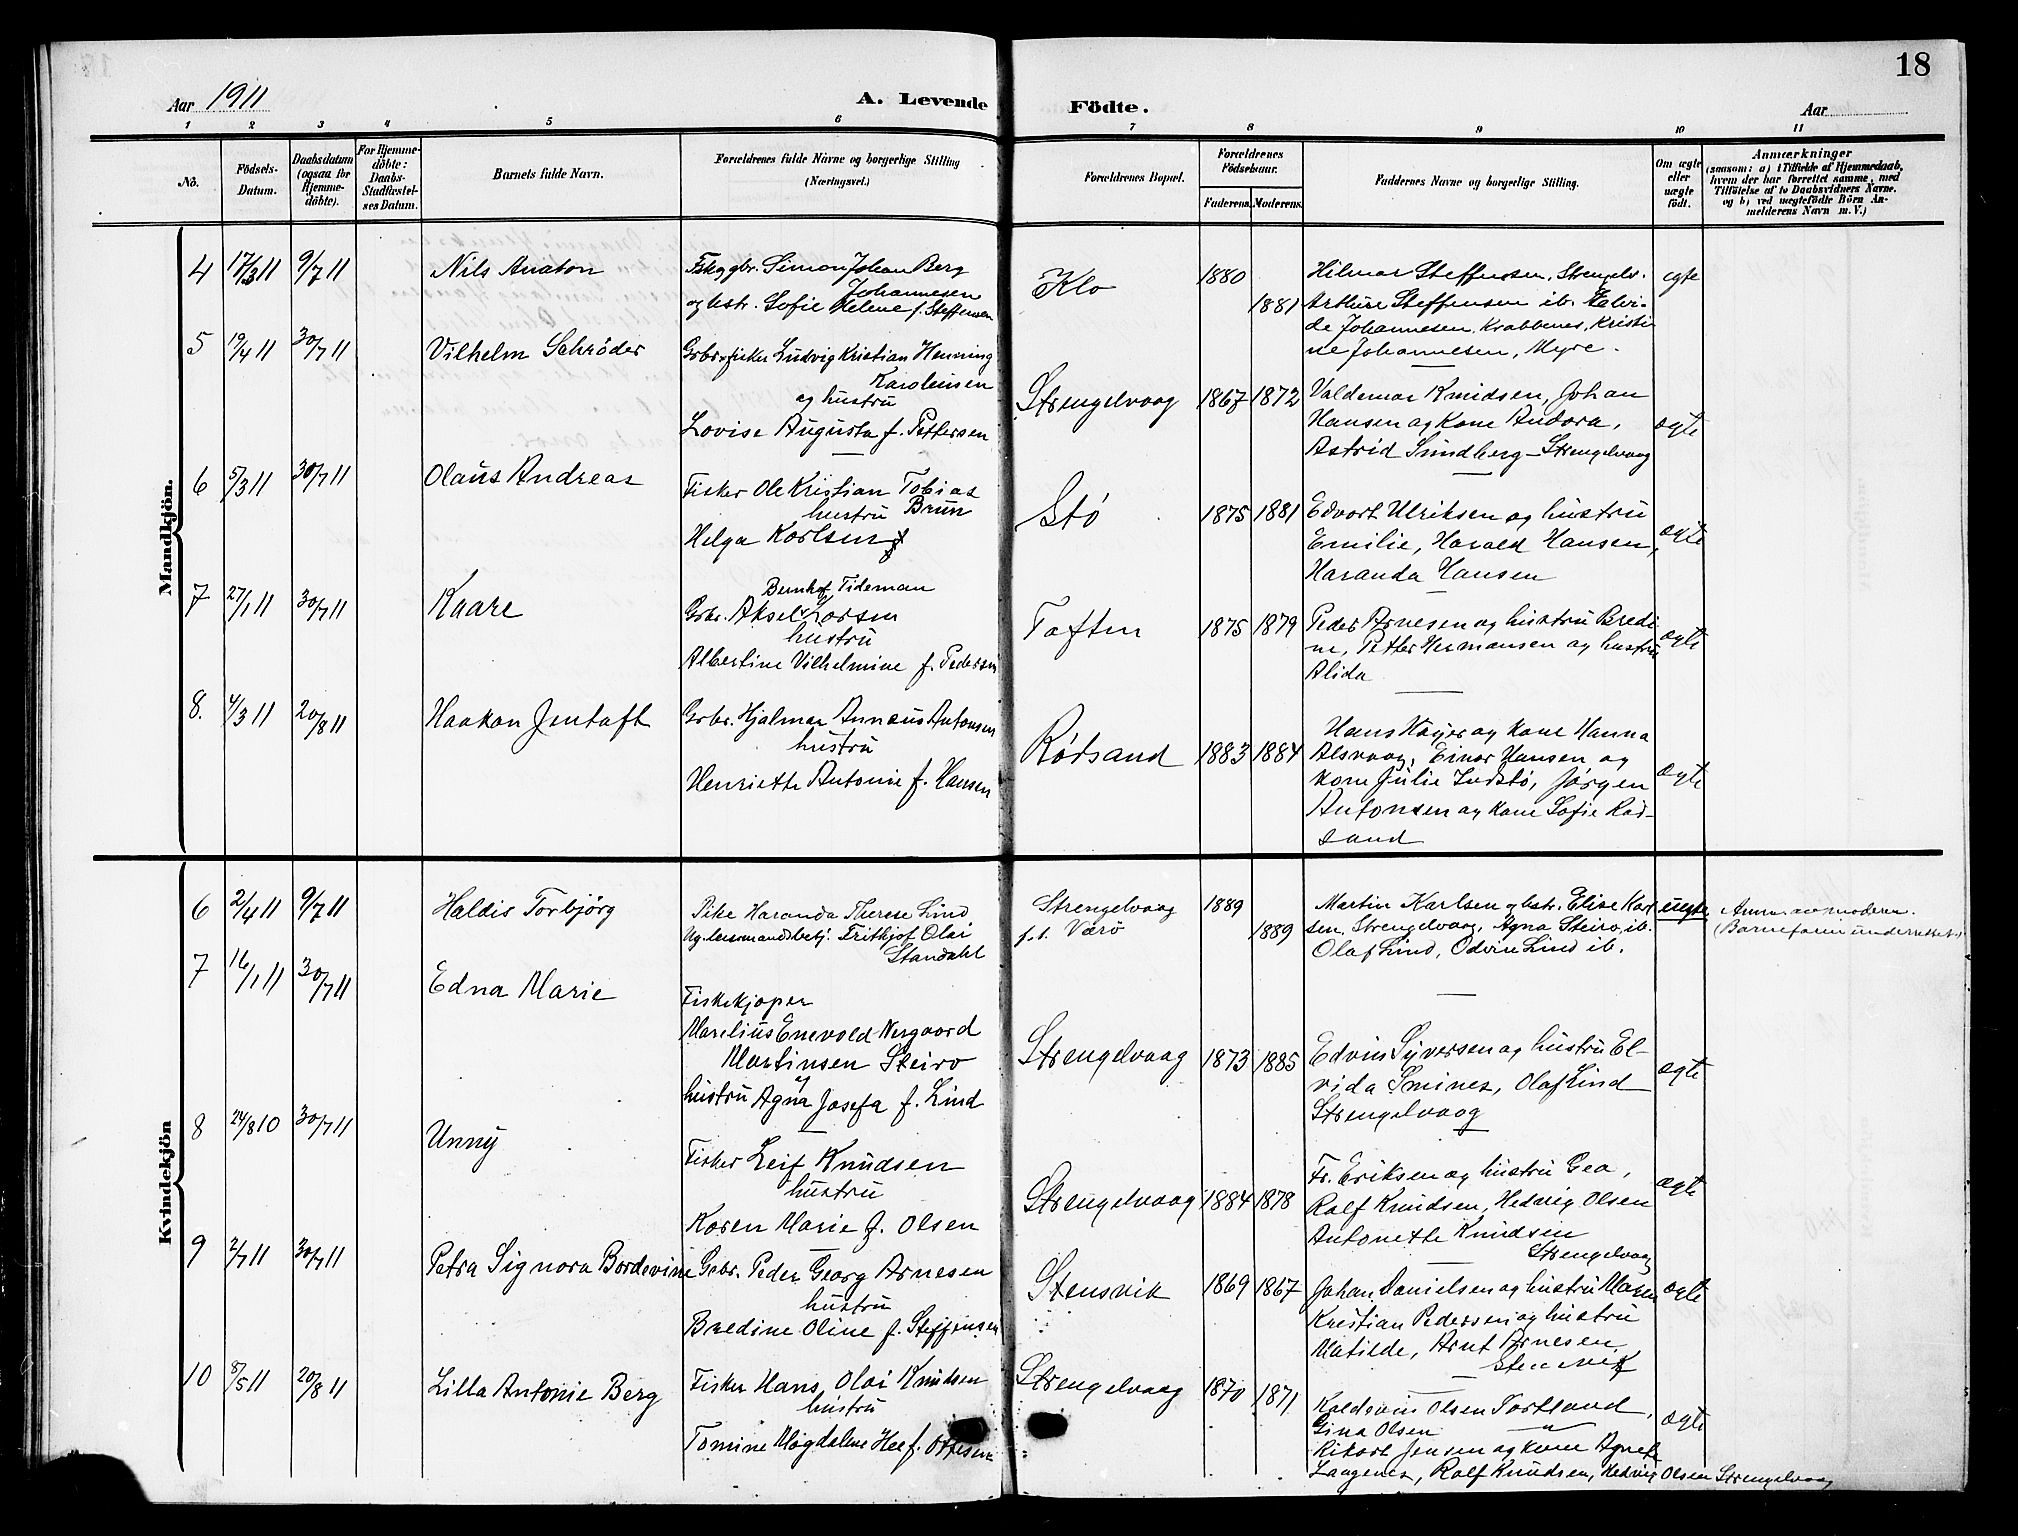 18
Aar 1911
A. Levende Födte.
Aar
1 2 3 4 5 6 7 8 9 10 11
No.
Födsels-Datum.
Daabsdatum (ogsaa for Hjemmedöbte).
For Hjemmedöbte: Daabs-Stadfæstelses Datum.
Barnets fulde Navn.
Forældrenes fulde Navne og borgerlige Stilling (Næringsvei.)
Forældrenes Bopæl.
Forældrenes Födselsaar.
Faderens. Moderens.
Faddernes Navne og borgerlige Stilling.
Om ægte eller uægte födt.
Anmærkninger
(saasom: a) i Tilfælde af Hjemmedaab,
hvem der har forrettet samme, med
Tilföielse af to Daabsvidners Navne.
og b) ved uægtefödte Börn An-
melderens Navn m. V.)
Mandkjön.
4 17/3 11 9/7 11 Nils Anaton
Fsk.ggbr. Simon Johan Berg
Johannesen
og hstr. Sofie Helene f. Steffensen
Klo 1880 1881
Hilmar Steffensen, Strengelv.
Arthure Steffensen ib. Edevi-
de Johannesen, Krabbenes, Kristi
ne Johannesen, Myre.
egte
5 19/4 11 30/7 11 Vilhelm Schröder
Grbr. fisker Ludvig Kristian Henning
Karolinsen
og hustru
Lovise Augusta f. Pettersen
Strengelvaag 1867 1872
Valdemar Knudsen, Johan
Hansen og Kone Andora,
Astrid Sundberg - Strengelvaag
ægte
6 5/3 11 30/7 11 Olaus Andreas
Fisker Ole Kristian Tobias
hustru Brun
Helga Karlsen
Stø 1875 1881
Edvart Ulriksen og hustru
Emilie, Harald Hansen,
Haranda Hansen
ægte
7 27/1 11 30/7 11 Kaare
Bernhof Tideman
Grbr. Aksel Larsen
hustru
Albertine Vilhelmine f. Pedersen
Toften 1875 1879
Peder Arnesen og hustru Bredi
ne, Petter Hermansen og hustru
Alida
ægte
8. 4/3 11 20/8 11 Haakon Jentoft
Grbr. Hjalmar Annæus Antonsen
hustru
Henriette Antonie f. Hansen
Rødsand 1883 1884
Hans Høyer og kone Hanna
Alsvaag, Einar Hansen og
kone Julie Indstø, Jørgen
Antonsen og kone Sofie Rød-
sand
ægte
Kvindekjön
6 2/4 11 9/7 11 Haldis Torbjörg
Pike Haranda Therese Lind
Ug. lensmandsbetj. Frithjof Olai
Standahl
Strengelvaag
f.t. Værø
1889 1889
Martin Karlsen og hstr. Elise Karl
sen, Strengelvaag, Agna Steiro, ib.
Olaf Lind, Odvin Lind ib.
uegte
Anm. av moderen.
(Barnefaren underrettet)
7 16/1 11 30/7 11 Edna Marie
Fiskekjøper
Marelius Enevold Nergaard
Martinsen Steiro
og
hustru Agna Josefa f. Lind
Strengelvaag 1873 1885
Edvin Syversen og hustru El-
vida Smines, Olaf Lind
Strengelvaag
ægte
8 24/8 10 30/7 11 Unny
Fisker Leif Knudsen
hustru
Karen Marie f. Olsen
Strengelvaag 1884 1878
Fr. Eriksen og hustru Gea,
Rolf Knudsen, Hedvig Olsen
Antonette Knudsen
Strengelvaag
ægte
9 2/7 11 30/7 11 Petra Signora Bordevine
Grbr. Peder Georg Arnesen
hustru
Bredine Oline f. Steffensen
Stensvik 1869 1867
Johan Danielsen og hustru Maren
Kristian Pedersen og hustru
Matilde, Arnt Arnesen
Stensvik
ægte
10 8/5 11 20/8 11 Lilla Antonie Berg
Fisker Hans Olai Knudsen
hustru
Tomine Magdalene Hee f. Ottesen
Strengelvaag 1870 1871
Kaldsvin Olsen Sortland,
Gina Olsen "
Rikart Jensen og kone Agnete
Langenes, Rolf Knudsen, Hedvig Olsen Strengelvaag
ægte